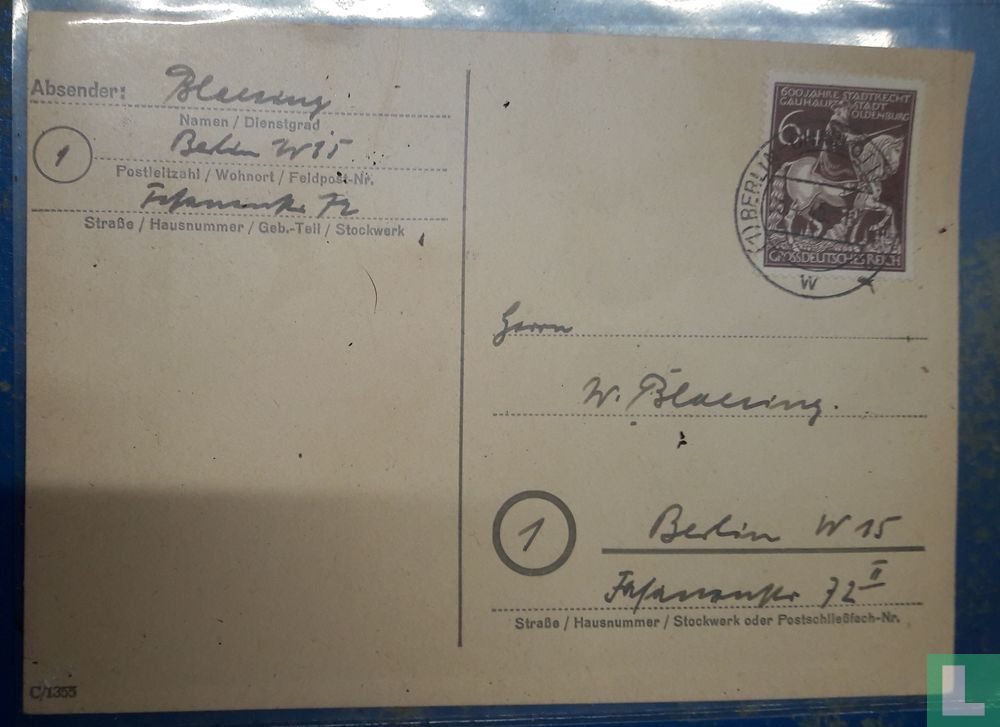 Absender: Blaesing
Namen / Dienstgrad
1 Berlin W15
Postleitzahl / Wohnort / Feldpost-Nr.
Fasanenstr 72
Straße / Hausnummer / Geb.-Teil / Stockwerk
600 JAHRE STADTRECHT
GAUHAUPTSTADT
OLDENBURG
6
GROSSDEUTSCHES REICH
(1) BERLIN
W
Herrn
W. Blaesing.
1 Berlin W 15
Fasanenstr 72 II
Straße / Hausnummer / Stockwerk oder Postschließfach-Nr.
C/1355
L